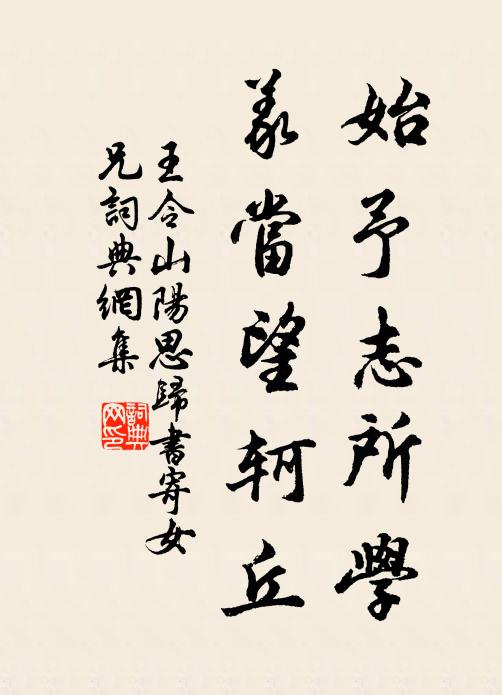 始予志所學
羕當望軻丘
王令山陽思歸書寄女
兄詞典網集
詞典
网印